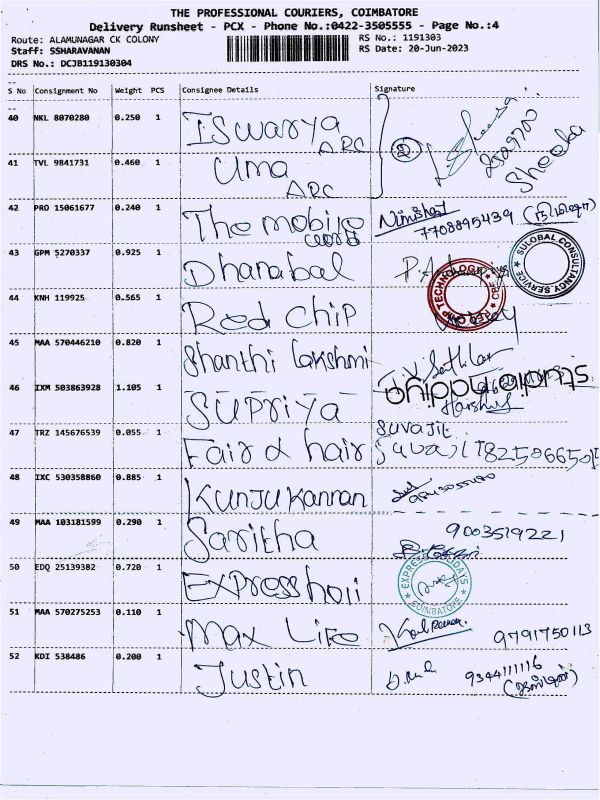 THE PROFESSIONAL COURIERS, COIMBATORE
Delivery Runsheet - PCX - Phone No.:0422-3505555 - Page No.:4
Route: ALAMUNAGAR CK COLONY
RS No.: 1191303
Staff: SSHARAVANAN
RS Date: 20-Jun-2023
DRS No.: DCJB119130304
S No Consignment No Weight PCS Consignee Details Signature
40 NKL 8070280 0.250 1 Iswarya ARC
41 TVL 9841731 0.460 1 Uma ARC
2
Shooba
42 PRO 15061677 0.240 1 The mobile world
7708895439
43 GPM 5270337 0.925 1 Dhanabal
SULOBAL CONSULTANCY SERVICE
44 KNH 119925 0.565 1 Red chip
RED CHIP TECHNOLOGY
45 MAA 570446210 0.820 1 Shanthi lakshmi
46 IXM 503863928 1.105 1 Supriya
47 TRZ 145676539 0.055 1 Fair & hair
SUVAJIL
48 IXC 530358860 0.885 1 Kunju Kannan
49 MAA 103181599 0.290 1 Saritha
9003519221
50 EDQ 25139382 0.720 1 Express holi
COIMBATORE
51 MAA 570275253 0.110 1 Max Life
9791750113
52 KDI 538486 0.200 1 Justin
9344111116